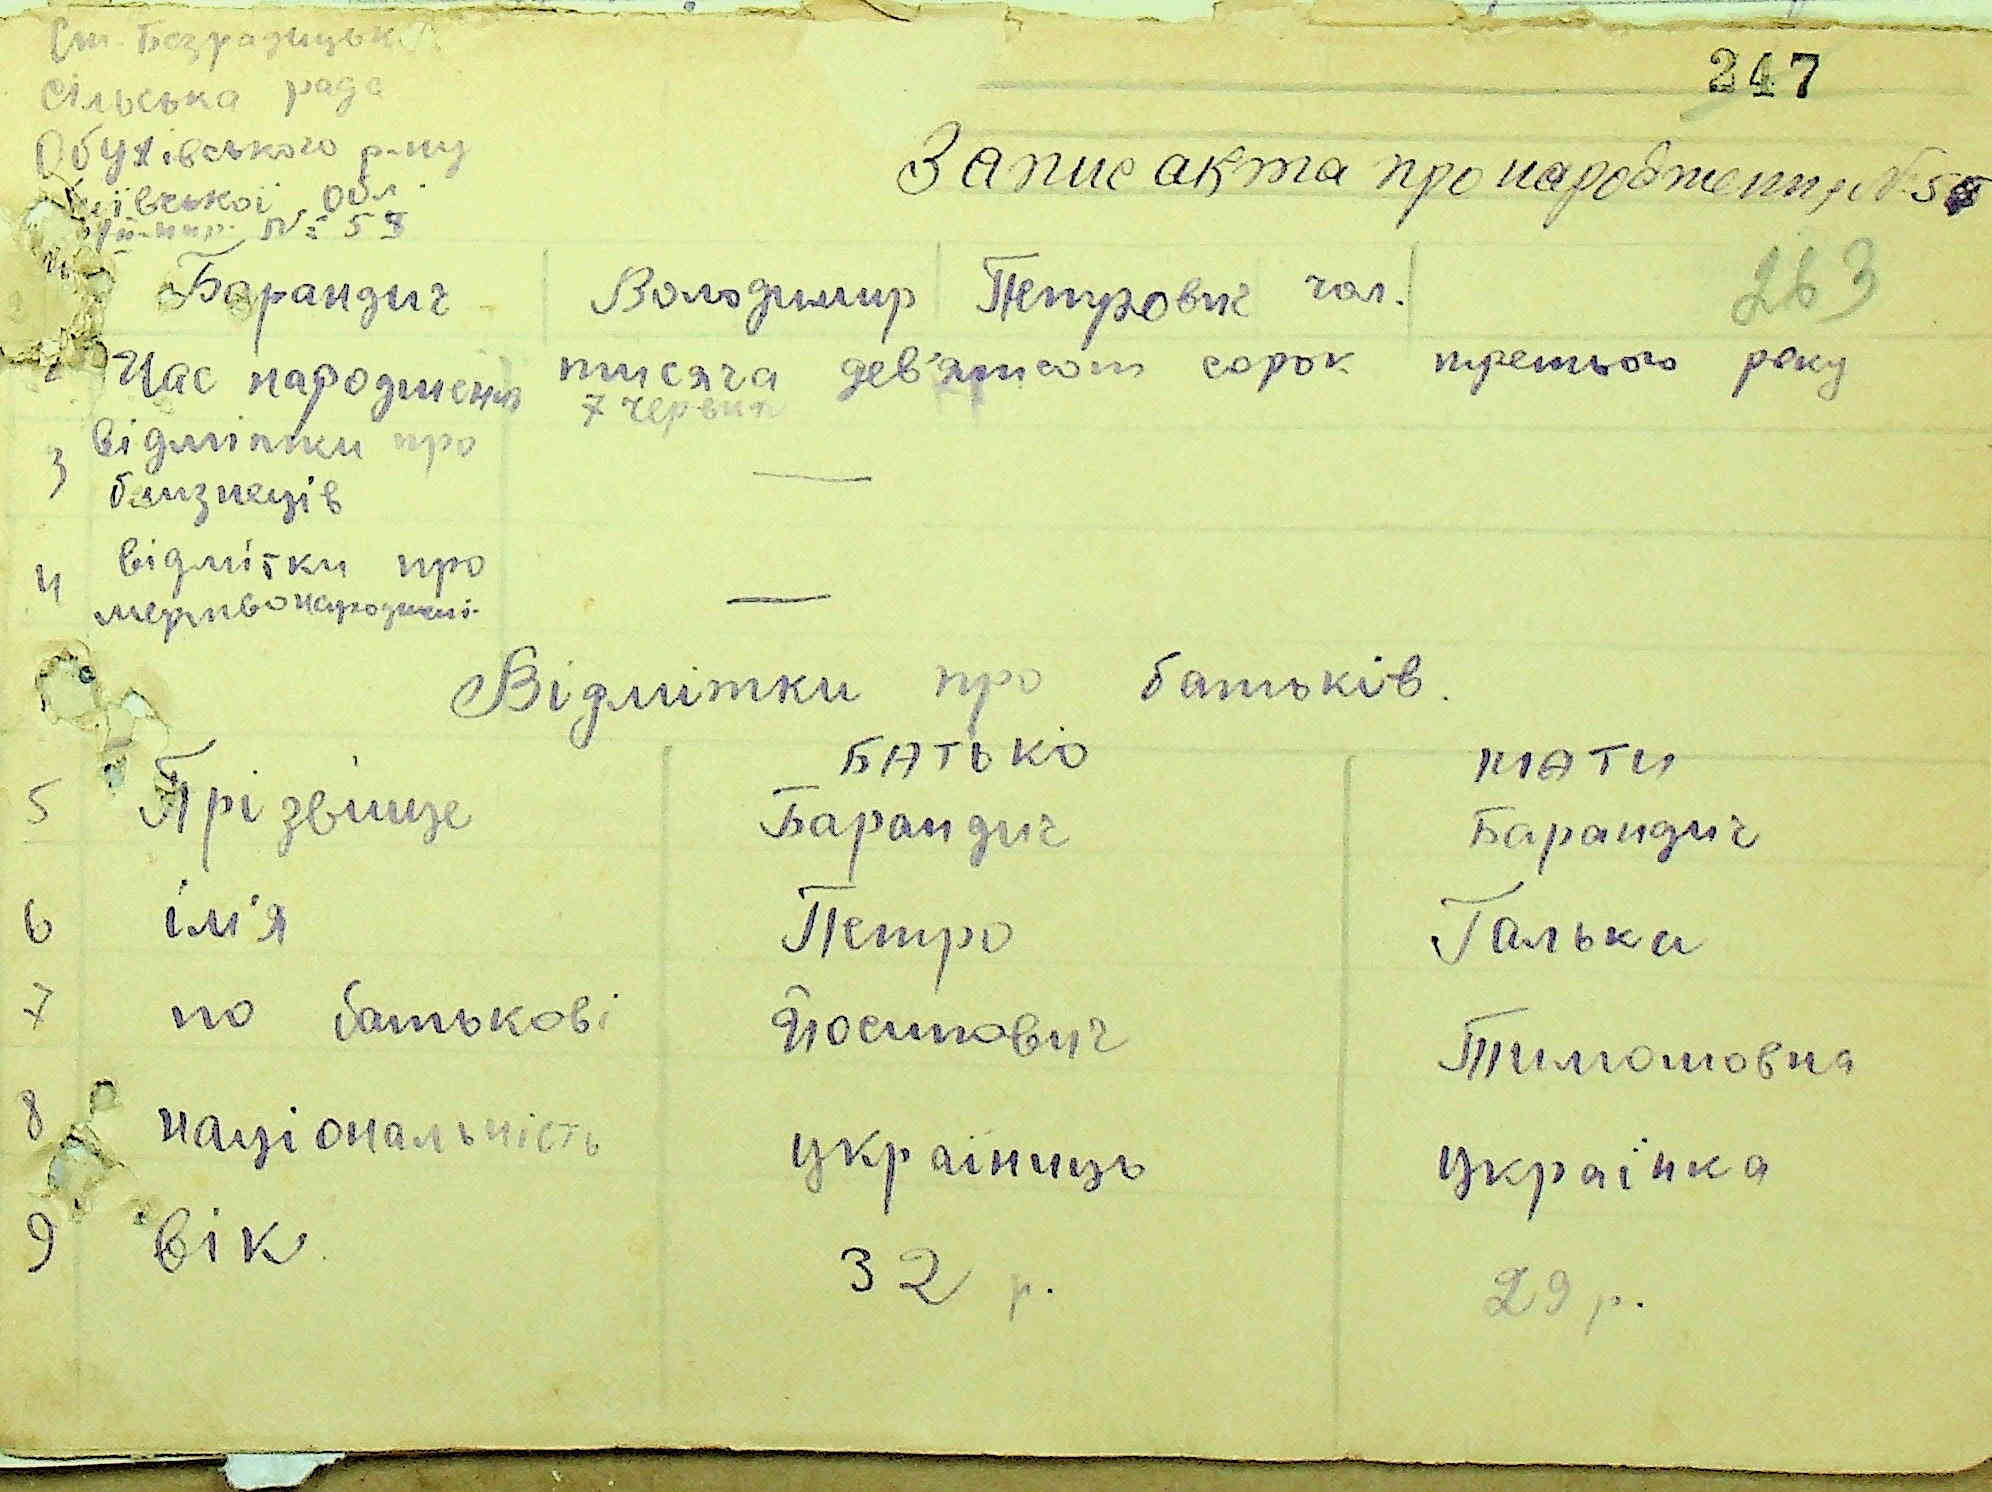 Ст. Безрадицька
сільська рада
247
Обухівського р-ну
Записакта про народження №5
Київської обл.
№ 53
Барандич Володимир Петрович чол. 263
2 Час народження тисяча дев'ятсот сорок третього року
7 червня
3 відмітки про —
близнеців
4 відмітки про —
мертвонароджені
Відмітки про батьків.
БАТЬКО МАТИ
5 Прізвище Барандич Барандич
6 ім'я Петро Галька
7 по батькові Йосипович Тимошовна
8 національність україниць українка
9 вік 32 р. 29 р.